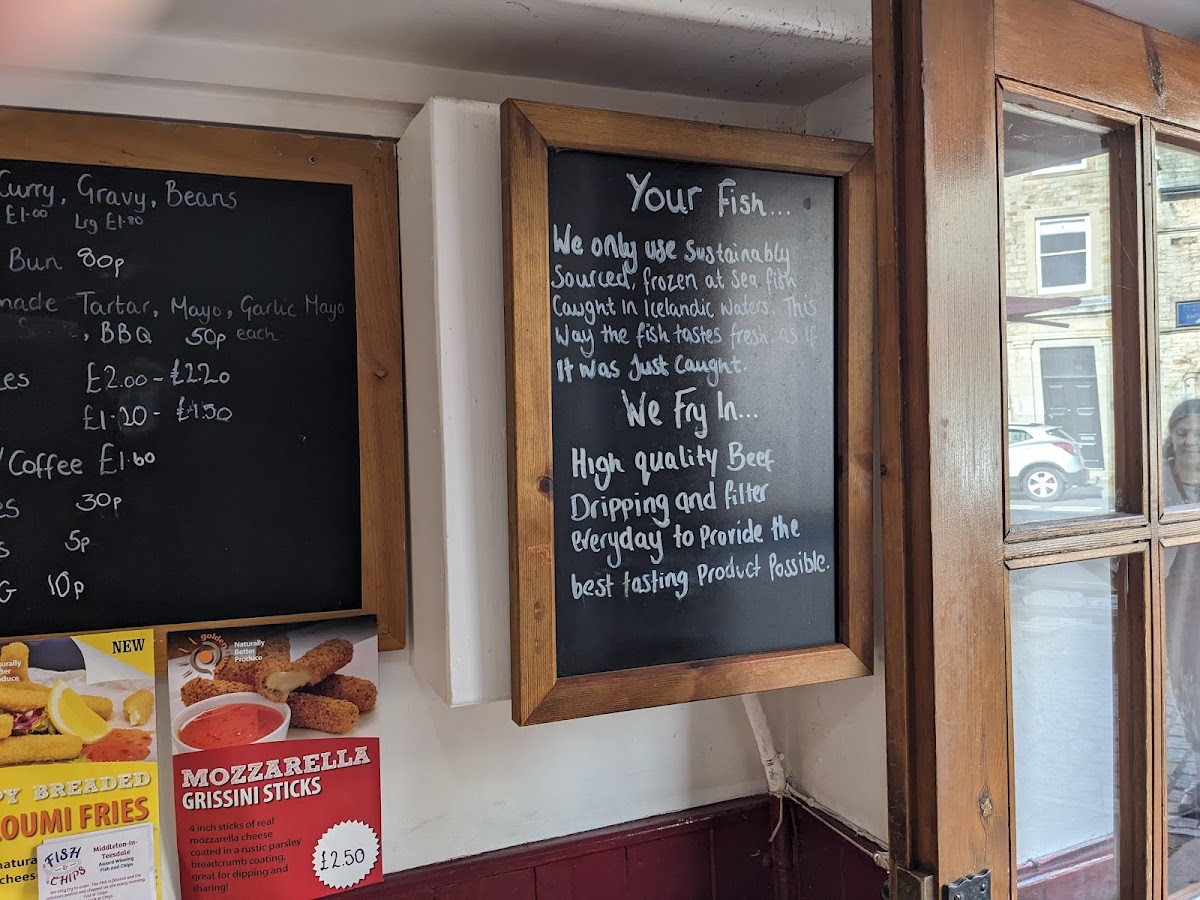 Curry, Gravy, Beans
£1.00 Lrg £1.80
Bun 80p
made Tartar, Mayo, Garlic Mayo
, BBQ 50p each
es £2.00 - £2.20
£1.20 - £1.50
/Coffee £1.60
es 30p
s 5p
G 10p
Your Fish...
We only use Sustainably
Sourced, frozen at Sea fish
Caught In Icelandic Waters. This
Way the fish tastes fresh, as if
It was Just Caught.
We Fry In...
High quality Beef
Dripping and filter
everyday to Provide the
best tasting Product Possible.
NEW
PY BREADED
OUMI FRIES
natura
cheese
FISH & CHIPS
Middleton-In-
Teesdale
Award Winning
Fish and Chips
golden
Naturally
Better
Produce
MOZZARELLA
GRISSINI STICKS
4 inch sticks of real
mozzarella cheese
coated in a rustic parsley
breadcrumb coating,
great for dipping and
sharing!
£2.50